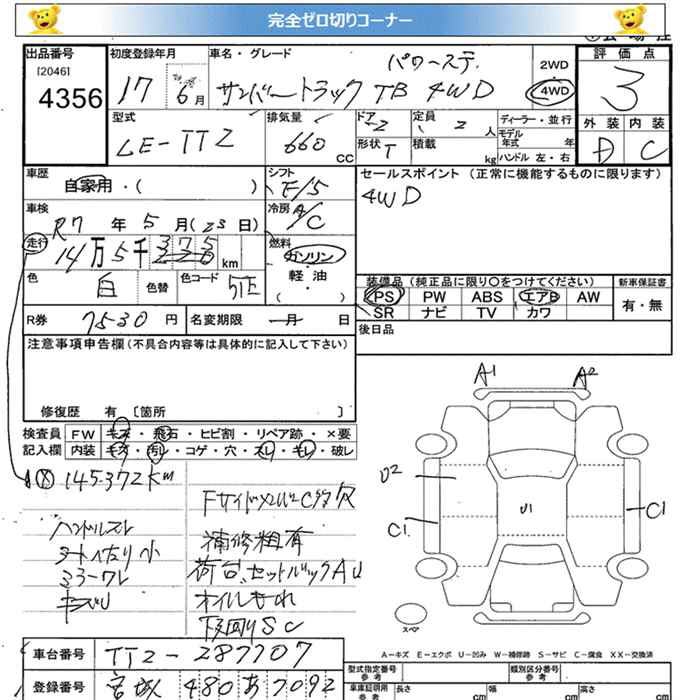 完全ゼロ切りコーナー
出品番号 初度登録年月 車名・グレード パワーステ. 2WD 評価点
[2046] 17 6月 サンバートラック TB 4WD 4WD 3
4356
型式 排気量 ドア 定員 ディーラー・並行 外装 内装
LE-TT2 660 CC 2 2人 モデル年式 年 D C
形状 T 積載 kg ハンドル 左・右
車歴 シフト セールスポイント (正常に機能するものに限ります)
自家用・( ) F/5 4WD
車検 冷房 A/C
R7年5月(23日)
走行 14万5千375km 燃料 ガソリン
軽・油
・
( )
色 白 色替 色コード 51E
装備品(純正品に限り○をつけてください) 新車保証書
PS PW ABS エアB AW 有・無
SR ナビ TV カワ
R券 7530円 名変期限 月 日 後日品
注意事項申告欄(不具合内容等は具体的に記入して下さい)
修復歴 有 〔箇所 〕
検査員 FW キズ・飛石・ヒビ割・リペア跡・×要
記入欄 内装 キズ・汚レ・コゲ・穴・スレ・キレ・破レ
145372Km
ハンドルスレ
シートヘたり小
ミラーワレ
キズU
FサイドメンバーC
補修粗有
荷台、セットバックAU
オイルもれ
下回りSC
A1 A2
U2 U1
C1 C1
スペア
A-キズ E-エクボ U-凹み W-補修跡 S-サビ C-腐食 XX-交換済
車台番号 TT2-287707
型式指定番号 参考 類別区分番号 参考
登録番号 宮城 480 あ 7092
車庫証明用 参考 長さ cm 幅 cm 高さ cm